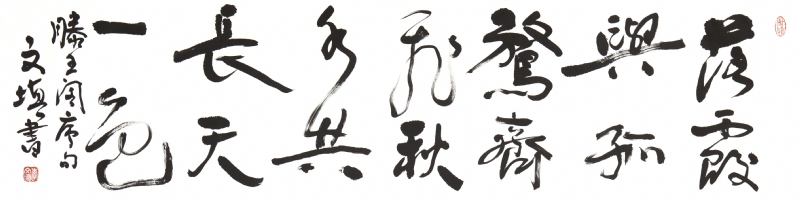 落霞
與孤
鶩齊
飛秋
水共
長天
一色
滕王阁序句
文書